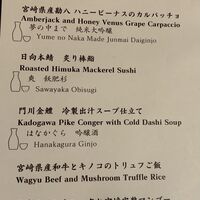 宮崎県産勘八 ハニービーナスのカルパッチョ
Amberjack and Honey Venus Grape Carpaccio
夢の中まで 純米大吟醸
Yume no Naka Made Junmai Daiginjo
日向本鯖 炙り棒鮨
Roasted Himuka Mackerel Sushi
爽 飫肥杉
Sawayaka Obisugi
門川金鱧 冷製出汁スープ仕立て
Kadogawa Pike Conger with Cold Dashi Soup
はなかぐら 吟醸酒
Hanakagura Ginjo
宮崎県産和牛とキノコのトリュフご飯
Wagyu Beef and Mushroom Truffle Rice